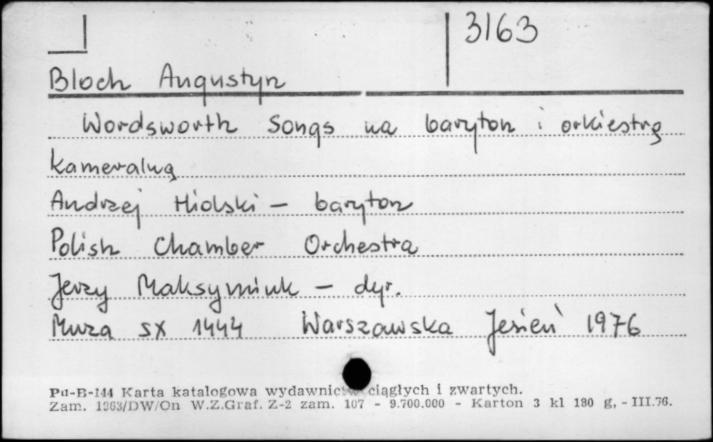 3163
Bloch Augustyn
Wordsworth Songs na baryton i orkiestrę
kameralną
Andrzej Hiolski – baryton
Polish Chamber Orchestra
Jerzy Maksymiuk – dyr.
Muza SX 1444 Warszawska Jesień 1976
Pu-B-144 Karta katalogowa wydawnictw ciągłych i zwartych.
Zam. 1363/DW/On W.Z.Graf. Z-2 zam. 107 - 9.700.000 - Karton 3 kl 180 g, - III.76.